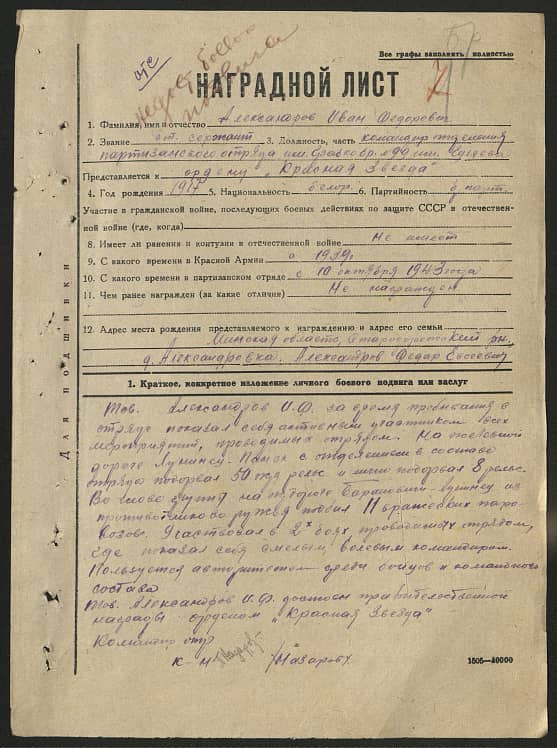 Все графы заполнять полностью
отс
НАГРАДНОЙ ЛИСТ
1. Фамилия, имя и отчество Александров Иван Федорович
2. Звание ст. сержант 3. Должность, часть командир отделения
партизанского отряда им.
Представляется к ордену „Красная Звезда"
4. Год рождения 1917 5. Национальность белор. 6. Партийность б/парт.
Участие в гражданской войне, последующих боевых действиях по защите СССР в отечествен-
ной войне (где, когда)
8. Имеет ли ранения и контузии в отечественной войне Не имеет
9. С какого времени в Красной Армии с 1939г.
10. С какого времени в партизанском отряде с 10 октября 1943 года
11. Чем ранее награжден (за какие отличия) Не награжден
12. Адрес места рождения представляемого к награждению и адрес его семьи
Минская область, Старобинский рн,
д. Александровка. Александров Федор Евсеевич
Для подшивки
1. Краткое, конкретное изложение личного боевого подвига или заслуг
Тов. Александров И.Ф. за время пребывания в
отряде показал себя активным участником всех
мероприятий, проводимых отрядом. На железной
дороге Лунинец-Пинск с отделением в составе
отряда подорвал 50 рельс и лично подорвал 8 рельс.
Во главе групп на ж/дороге Баранович-Лунинец из
противотанкового ружья подбил 11 вражеских паро-
возов. Участвовал в 2х боях проводимых отрядом,
где показал себя смелым, волевым командиром.
Пользуется авторитетом среди бойцов и командного
состава
Тов. Александров И.Ф. достоин правительственной
награды орденом „Красная Звезда"
Командир отр.
к-н /Назаров/
1505—10000